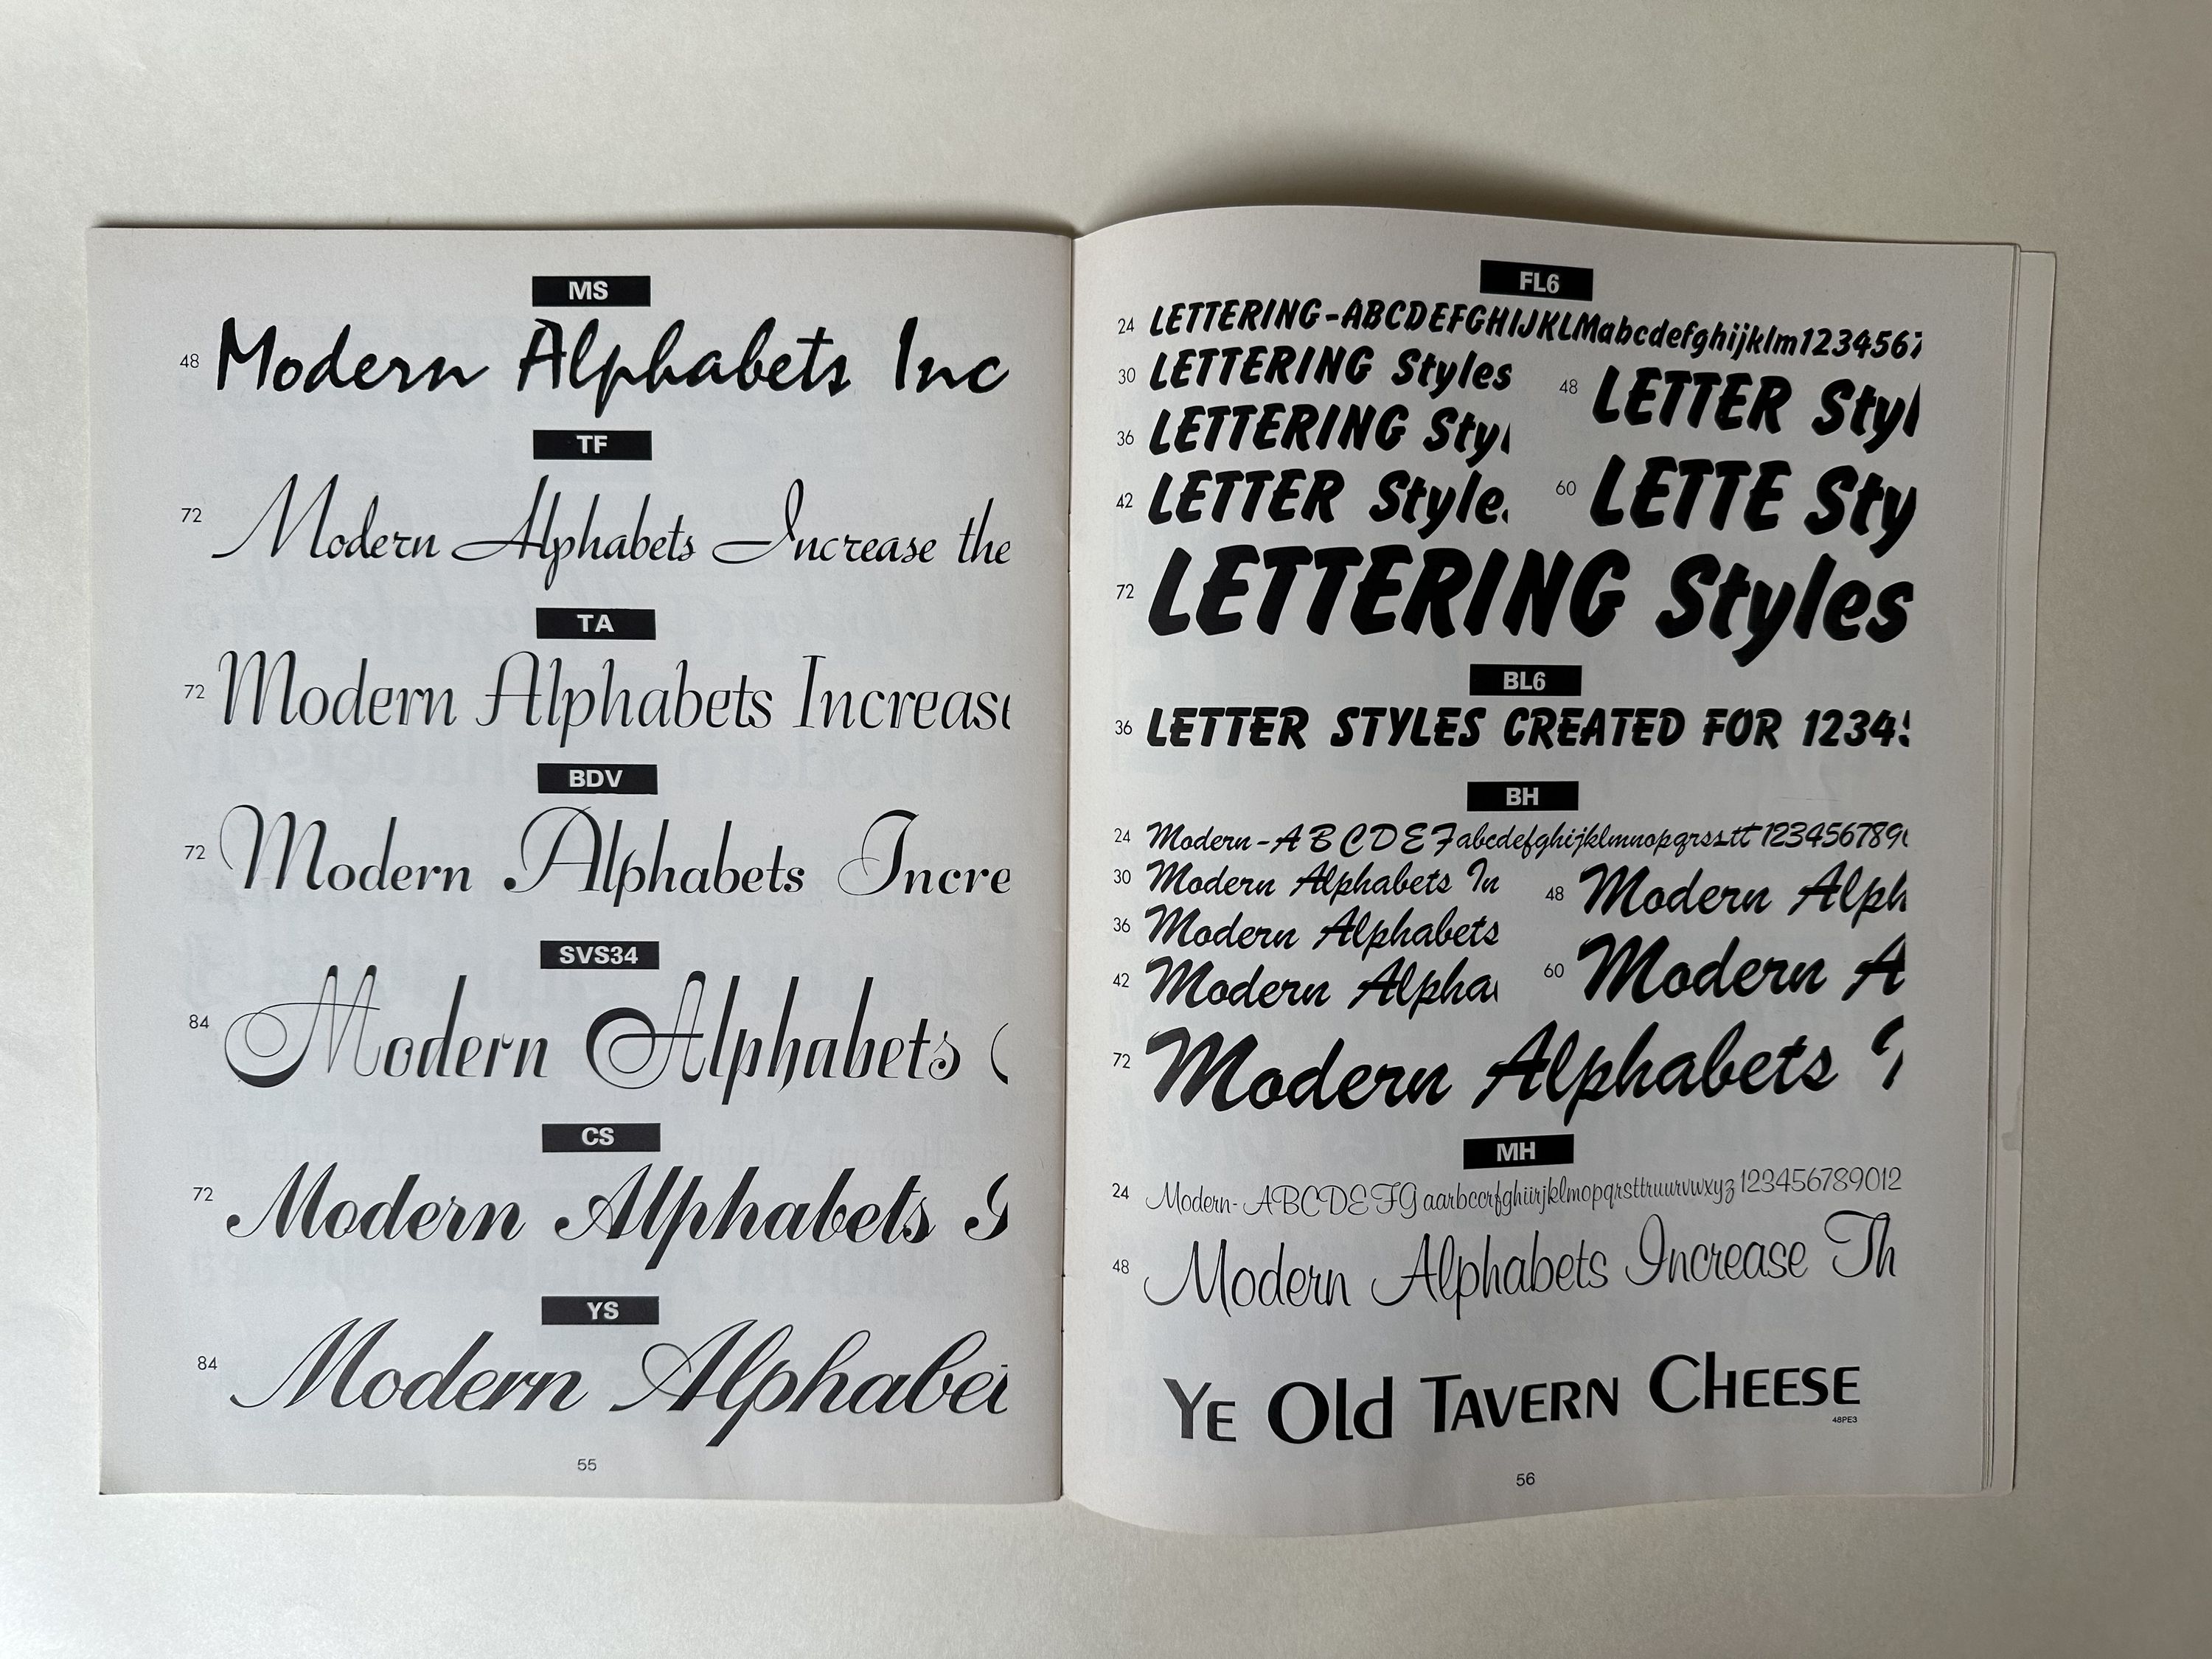 MS
48 Modern Alphabets Inc
TF
72 Modern Alphabets Increase the
TA
72 Modern Alphabets Increase
BDV
72 Modern Alphabets Incre
SVS34
84 Modern Alphabets
CS
72 Modern Alphabets I
YS
84 Modern Alphabet
55
FL6
24 LETTERING-ABCDEFGHIJKLMabcdefghijklm1234567
30 LETTERING Styles
36 LETTERING Styl
42 LETTER Style
48 LETTER Styl
60 LETTE Sty
72 LETTERING Styles
BL6
36 LETTER STYLES CREATED FOR 12345
BH
24 Modern-ABCDEFabcdefghijklmnopqrsstt1234567890
30 Modern Alphabets In
36 Modern Alphabets
42 Modern Alpha
48 Modern Alph
60 Modern A
72 Modern Alphabets
MH
24 Modern-ABCDEFG aarbccrfghiirjklmopqrsttruurvwxyz 123456789012
48 Modern Alphabets Increase Th
Ye Old Tavern Cheese
48PE3
56